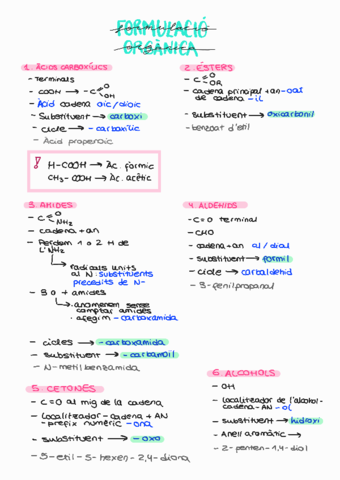 FORMULACIÓ
ORGÀNICA
1. ÀCIDS CARBOXÍLICS
- Terminals
- COOH → - C O OH
- Àcid cadena oic/dioic
- Substituent → carboxi
- Cicle → - carboxílic
- Àcid propenoic
! H-COOH → Ac. fòrmic
CH3 - COOH → Ac. acètic
2. ÈSTERS
- C O OR
- cadena principal + an - oat
de cadena - il
- Substituent → oxicarbonil
- benzoat d'etil
3. AMIDES
- C O NH2
- cadena + an
- Perdem 1 o 2 H de
L'NH2
radicals units
al N: substituents
precedits de N-
- 3 o + amides
anomenem sense
comptar amides
afegim - carboxamida
- cicles → - carboxamida
- substituent → - carbamoil
- N-metilbenzamida
4. ALDEHIDS
- C=O terminal
- CHO
- cadena + an al/dial
- substituent → formil
- cicle → carbaldehid
- 3-fenilpropanal
5. CETONES
- C=O al mig de la cadena
- Localitzador - cadena + AN
- prefix numèric - ona
- substituent → - oxo
- 5-etil-5-hexen-2,4-diona
6. ALCOHOLS
- OH
- Localitzador de l'alcohol -
cadena - AN - ol
- substituent → hidroxi
- Anell aromàtic →
- 2-penten-1,4-diol